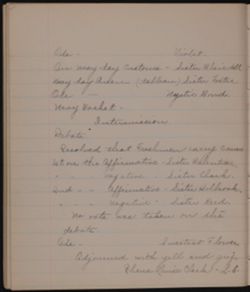 Ode - Violet.
Our may-day Customs - Sister
May-day Queen (tableau) Sister
Ode - Mystic Bond.
May Basket -
Intermission.
Debate.
Resolved that Freshmen carry canes
1st on the Affirmative - Sister
" " " negative - Sister Clark.
2nd - " affirmative - Sister Holbrook
" " " negative - Sister Reed.
No vote was taken on the
debate.
Ode - Sweetest Flower
Adjourned with yell and grip.
Clark - S.C.